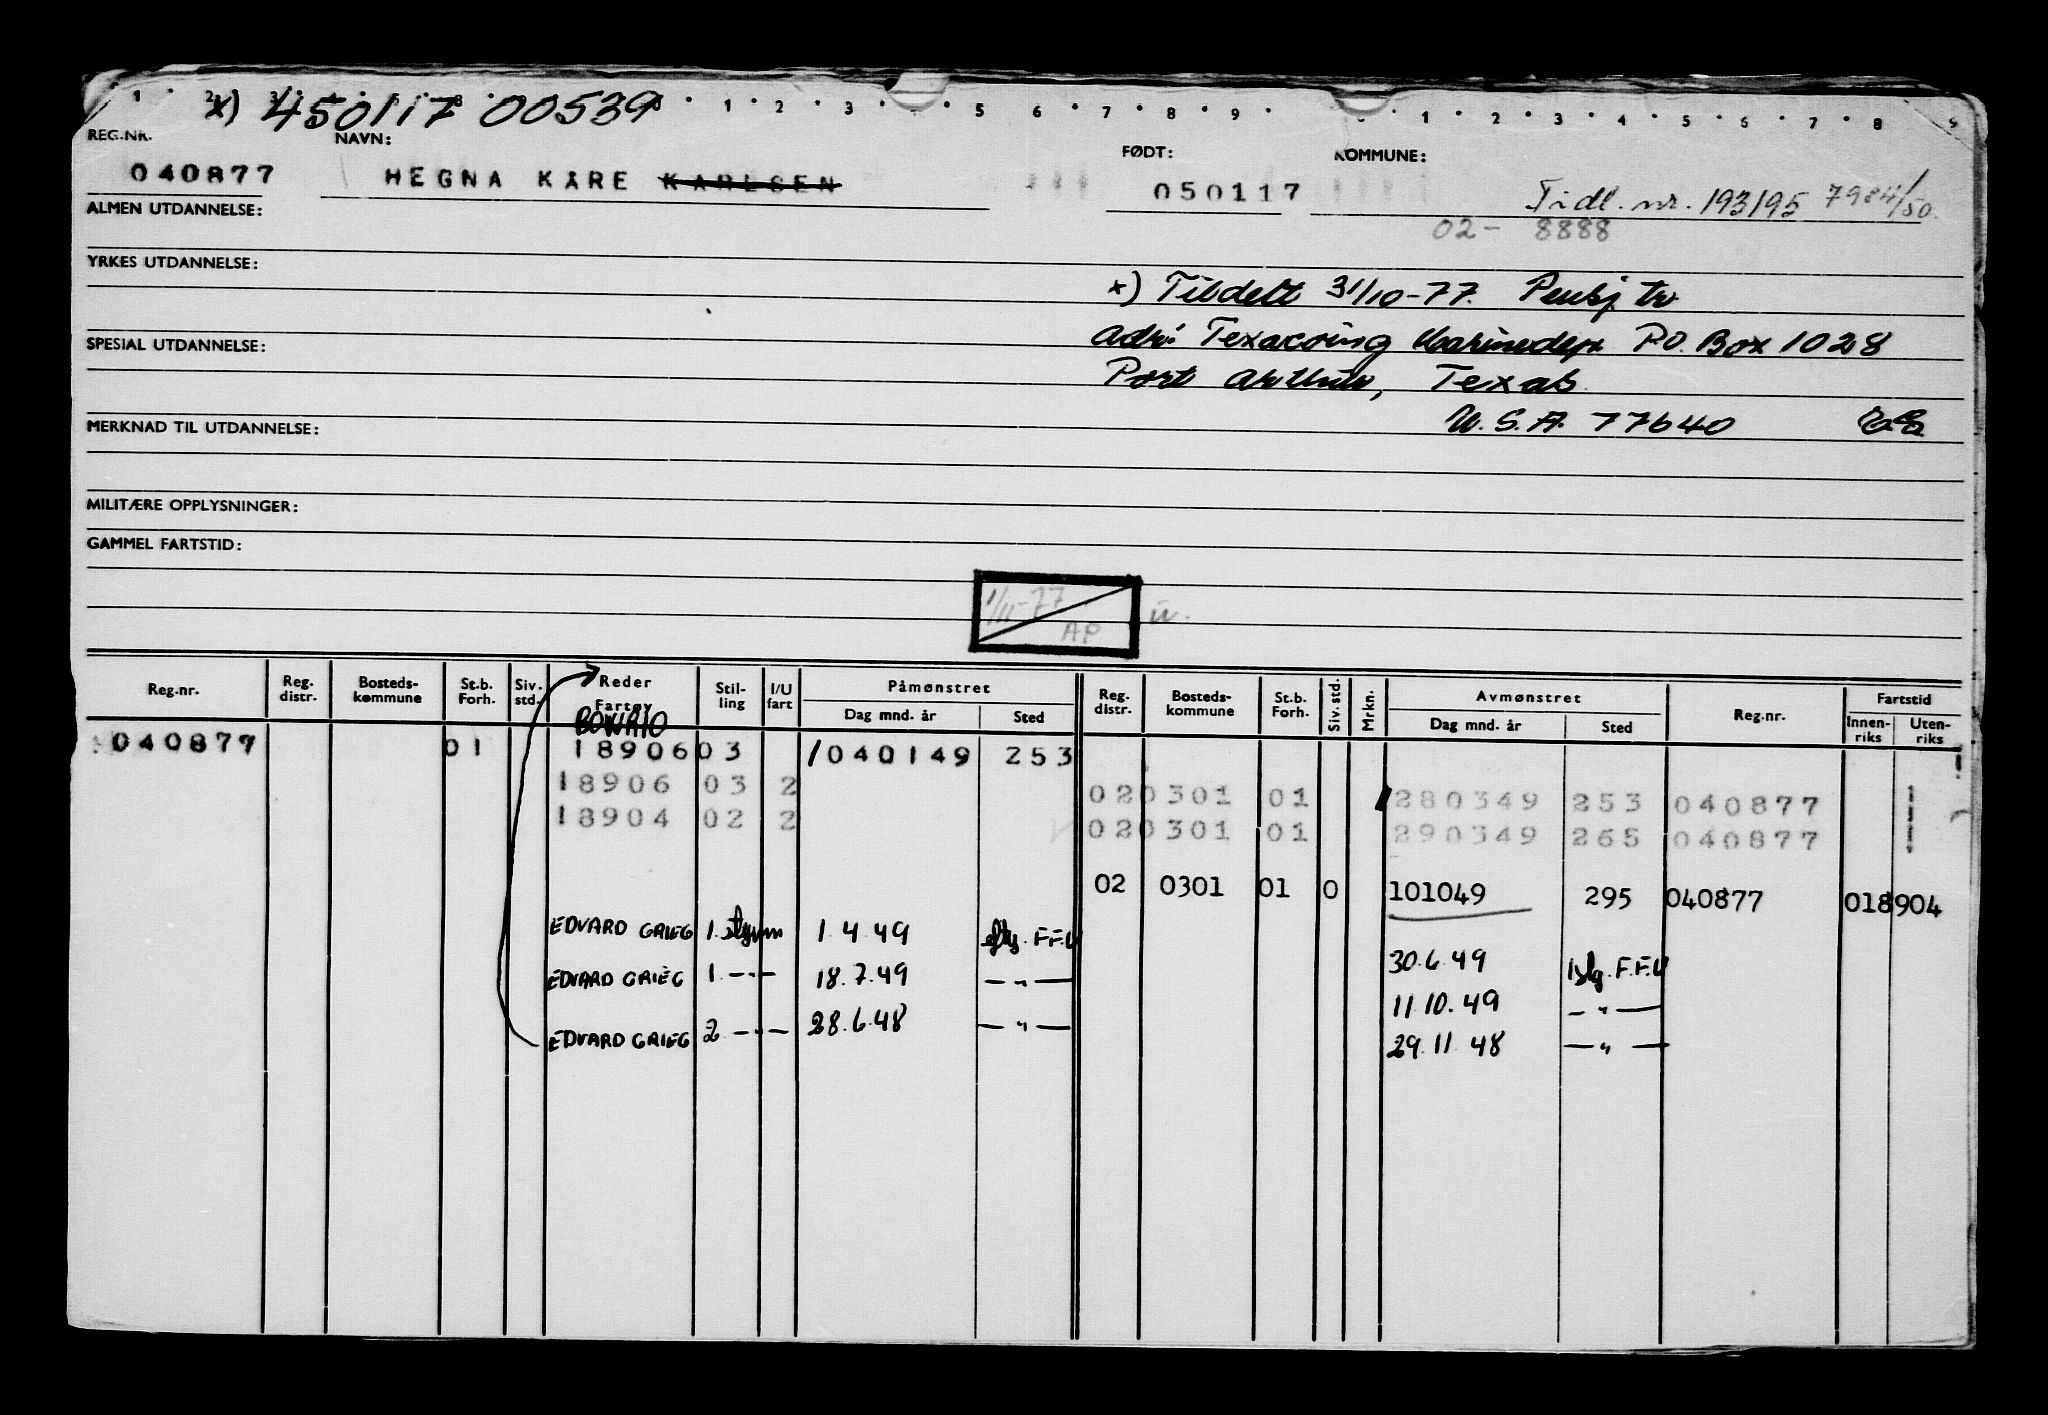 x) 450117 00539
REG.NR. NAVN: FØDT: KOMMUNE:
040877 HEGNA KÅRE KARLSEN 050117 Tidl. nr. 193195 7984/50.
02- 8888
ALMEN UTDANNELSE:
YRKES UTDANNELSE:
x) Tildelt 31/10-77. Pensj. tr
SPESIAL UTDANNELSE: adr: P.O. Box 1028
Port Arthur, Texas
MERKNAD TIL UTDANNELSE: U.S.A. 77640
MILITÆRE OPPLYSNINGER:
GAMMEL FARTSTID:
1/11-77 AP
Reg.nr. Reg. distr. Bosteds-kommune St.b. Forh. Siv. std. Reder Fartøy Stil-ling I/U fart Påmønstret Dag mnd. år Sted Reg. distr. Bosteds-kommune St.b. Forh. Siv. std. Mrkn. Avmønstret Dag mnd. år Sted Reg.nr. Fartstid Innen-riks Uten-riks
040877 01 18906 03 1040149 253
18906 03 2 020301 01 280349 253 040877
18904 02 2 020301 01 290349 265 040877
02 0301 01 0 101049 295 040877 018904
EDVARD GRIEG 1. styrm 1.4.49 F.F.U 30.6.49 F.F.U
EDVARD GRIEG 1. -"- 18.7.49 -"- 11.10.49 -"-
EDVARD GRIEG 2. -"- 28.6.48 -"- 29.11.48 -"-